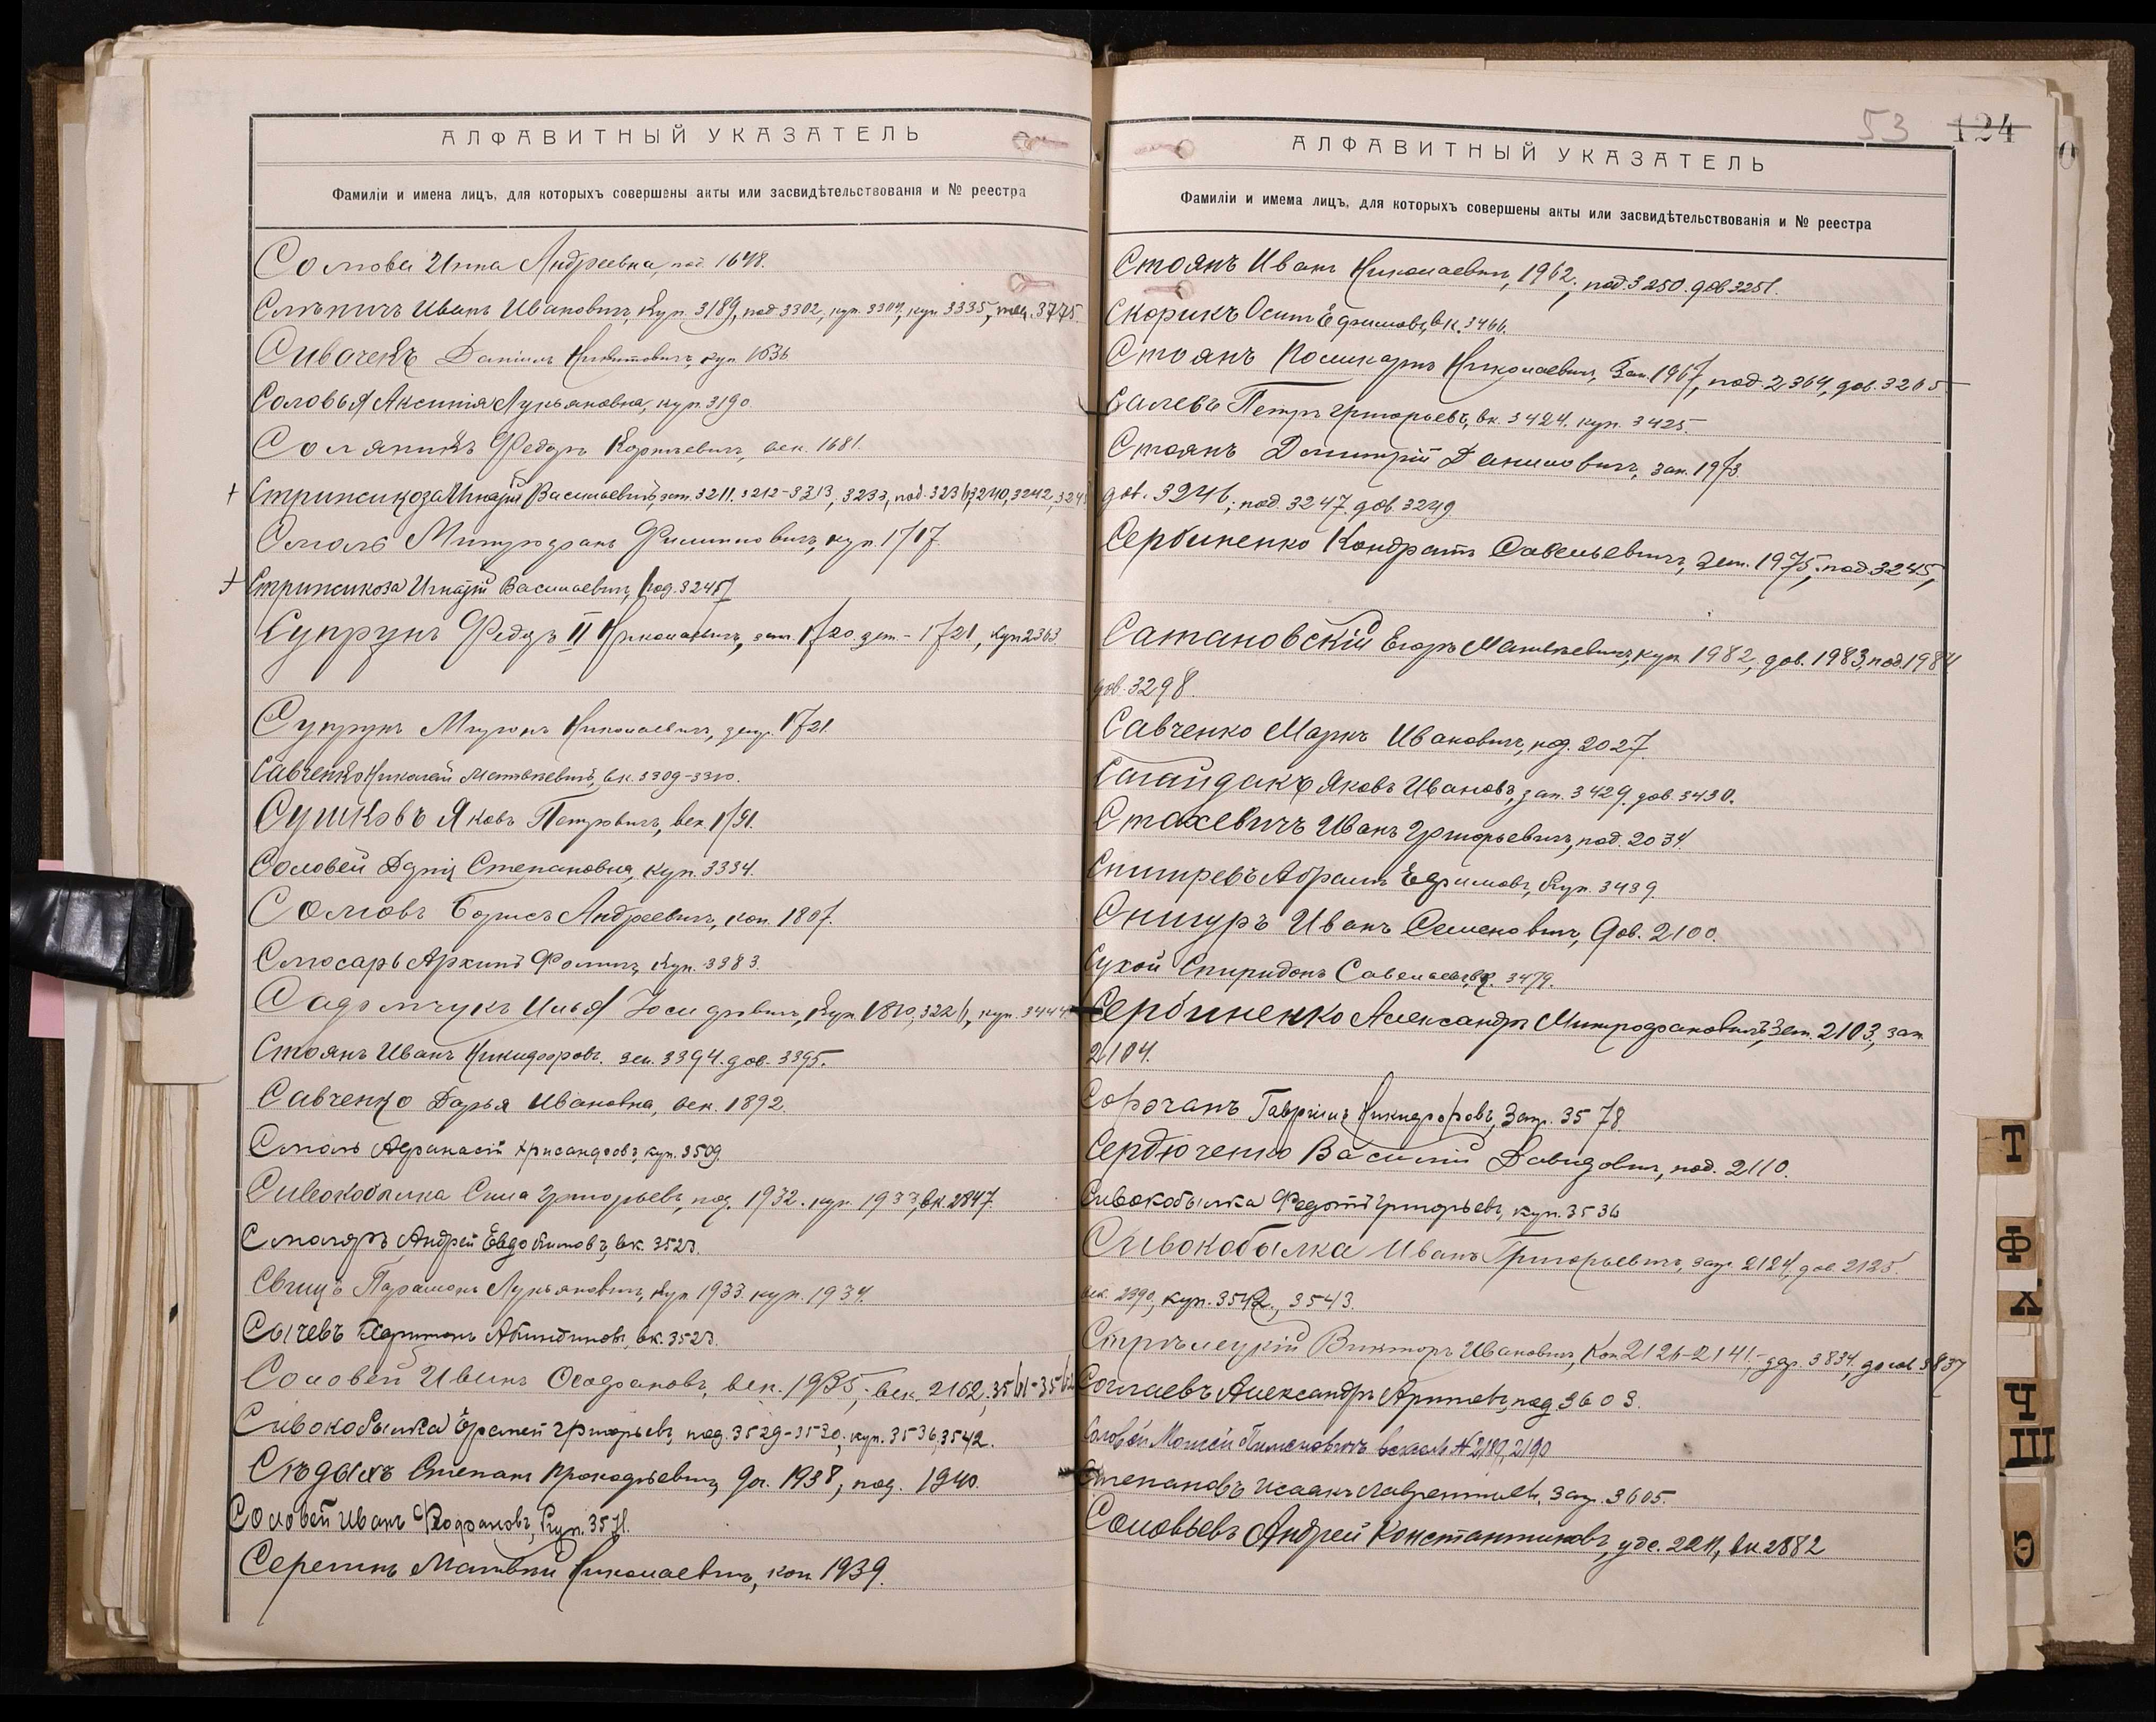 АЛФАВИТНЫЙ УКАЗАТЕЛЬ
Фамиліи и имена лицъ, для которыхъ совершены акты или засвидѣтельствованія и № реестра
Сомова Инна Андреевна, под. 1648.
Иванъ Ивановичъ, куп. 3189, под. 3302, куп. 3304, куп. 3335, 3775.
Сивоченъ Даніилъ Никитовичъ, куп. 1636
Соловья Аксинія Лукьяновна, куп. 3190
Солянникъ Федоръ Корнѣевичъ, век. 1681.
Стрижикоза Игнатій Васильевичъ, зап. 3211. 3212-3213, 3233, под. 3236, 3240, 3242, 324
Смоль Митрофанъ Филипповичъ, куп. 1717
Стрижикоза Игнатій Васильевичъ, под. 3245
Супрунъ Федоръ II Николаевичъ, зап. 1720. зап. - 1721, куп. 2363.
Супрунъ Миронъ Николаевичъ, зап. 1721.
Савченко Николай Матвѣевичъ, вк. 3309-3310.
Сушковъ Яковъ Петровичъ, век. 1791.
Соловей Дарія Степановна, куп. 3334.
Сомовъ Борисъ Андреевичъ, коп. 1807.
Слюсарь Архипъ Фомичъ, куп. 3383.
Садомчукъ Илья Іосифовичъ, куп. 1810, 3226, куп. 3444
Стоянъ Иванъ Никифоровъ. зап. 3394. дов. 3395.
Савченко Дарья Ивановна, век. 1892.
Смоль Афанасій Хрисанфовъ, куп. 3509
Сивокобылка Сила Григорьевъ, под. 1932. куп. 1933, вк. 2847.
Смоляръ Андрей Евдокимовъ, вк. 3523.
Свищъ Парамонъ Лукьяновичъ, куп. 1933. куп. 1934.
Сычевъ Харитонъ вк. 3523.
Соловей Иванъ Феофановъ, век. 1935, век. 2162, 3561-356
Сивокобылка Ерофей Григорьевъ, под. 3529-3530. куп. 3536, 3542.
Сѣдыхъ Степанъ Прокофьевичъ, до. 1938, под. 1940.
Соловей Иванъ Феофановъ, куп. 3571.
Серепинъ Матвѣй Николаевичъ, коп. 1939.
53 124
АЛФАВИТНЫЙ УКАЗАТЕЛЬ
Фамиліи и имема лицъ, для которыхъ совершены акты или засвидѣтельствованія и № реестра
Стоянъ Иванъ Николаевичъ, 1962, под. 3250. дов. 3251.
Скорикъ Осипъ Ефимовъ, вк. 3466.
Стоянъ Поликарпъ Николаевичъ, зап. 1967, под. 2364, дов. 3265
Салевъ Петръ Григорьевъ, вк. 3424. куп. 3425.
Стоянъ Дмитрій Даниловичъ, зап. 1973.
дов. 3246; под. 3247. дов. 3249
Сербиненко Кондратъ Савельевичъ, зап. 1975, под. 3245,
Сатановскій Егоръ Матвѣевичъ, куп. 1982, дов. 1983, под. 1984
дов. 3298.
Савченко Маркъ Ивановичъ, под. 2027.
Сагайдакъ Яковъ Ивановъ, зап. 3429. дов. 3430.
Стахевичъ Иванъ Григорьевичъ, под. 2034.
Абрамъ Ефимовъ, куп. 3439.
Снигуръ Иванъ Семеновичъ, дов. 2100.
Сухой Спиридонъ Савельевъ, 3479.
Сербиненко Александръ Митрофановичъ, зап. 2103, зап.
2104.
Сорочанъ Гавріилъ Никифоровъ, зап. 3578.
Сердюченко Василій Давидовичъ, под. 2110.
Сивокобылка Федотъ Григорьевъ, куп. 3536
Сивокобылка Иванъ Григорьевичъ, зап. 2124, дов. 2125.
век. 2390, куп. 3542., 3543.
Стрѣлецкій Викторъ Ивановичъ, коп. 2126-2141, 3834, 3837
Александръ под. 3603.
Соловей Моисей Пименовичъ вексель № 2189, 2190
Степановъ Исаакъ Лаврентьев. зап. 3605.
Соловьевъ Андрей Константиновъ, удо. 2211, вк. 2882
Т
Ф
Х
Ч
Ш
Э